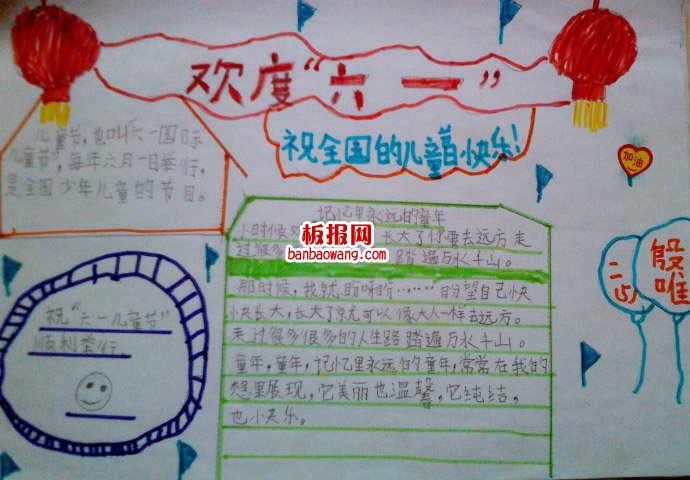 欢度“六一”
祝全国的儿童节快乐！
儿童节，也叫六一国际
儿童节，每年六月一日举行，
是全国少年儿童的节目。
加油
记忆里永远的童年
小时候 长大了你要去远方 走
过很多 踏遍万水千山。
板报网
banbaowang.com
那时候，我就盼呀盼……盼望自己快
快长大，长大了就可以像大人一样去远方。
走过很多很多的人生路 踏遍万水千山。
童年，童年，记忆里永远的童年，常常在我的
想里展现，它美丽也温馨，它纯结，
也小快乐。
祝“六一儿童节”
顺利举行。
二